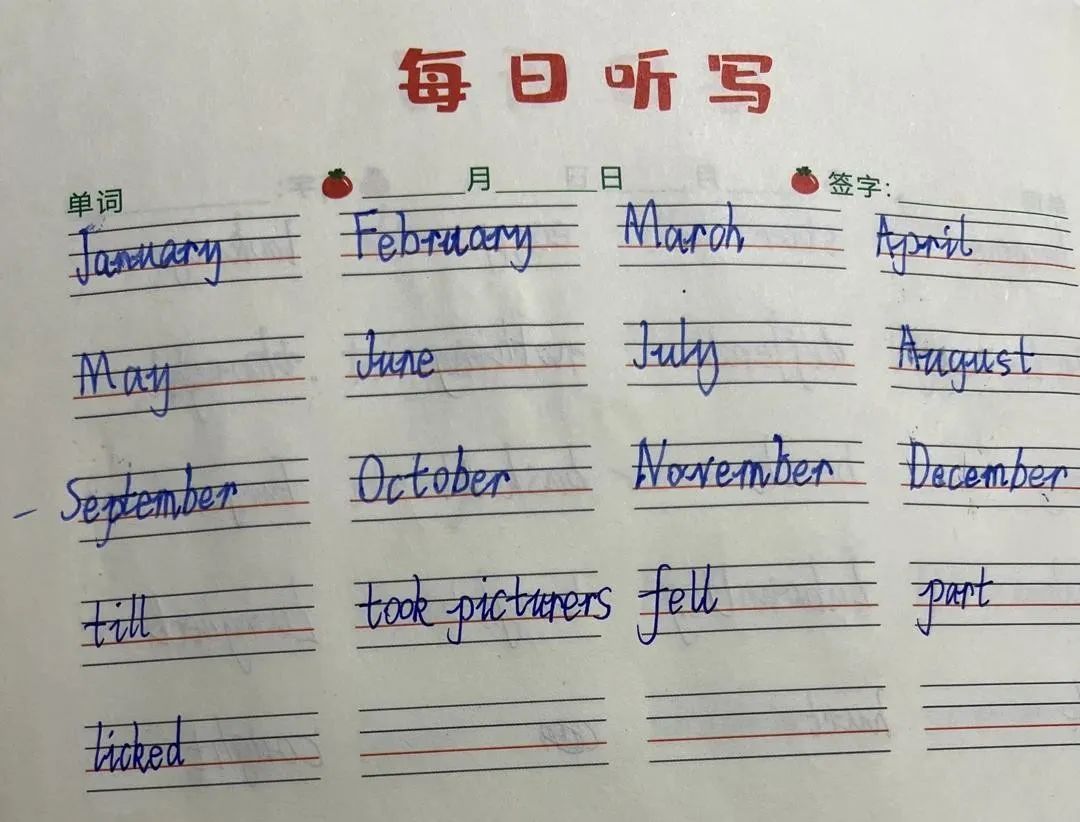 每日听写
单词 月 日 签字:
January February March April
May June July August
September October November December
till took picturers fell part
licked